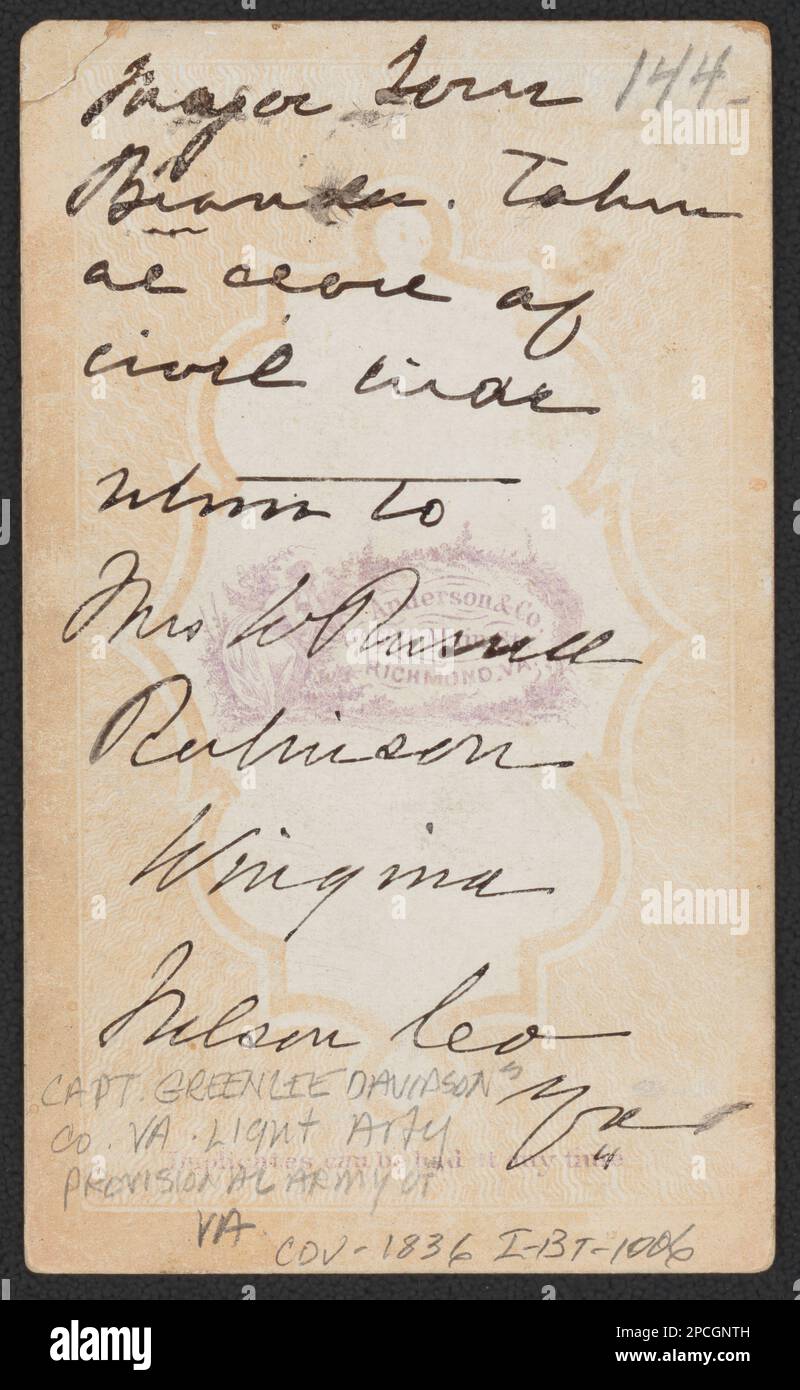 Major Tom 144-
Brander. Taken
at close of
civil war
return to
Anderson & Co
Mrs W Russell
RICHMOND, VA.
Robinson
Wingina
Nelson Co
Va
CAPT. GREENLEE DAVIDSON'S
CO. VA. Light Arty
Duplicates can be had at any time
PROVISIONAL ARMY OF
VA
COV-1836 I-BT-1006
alamy
alamy
alamy
Image ID: 2PCGNTH
www.alamy.com